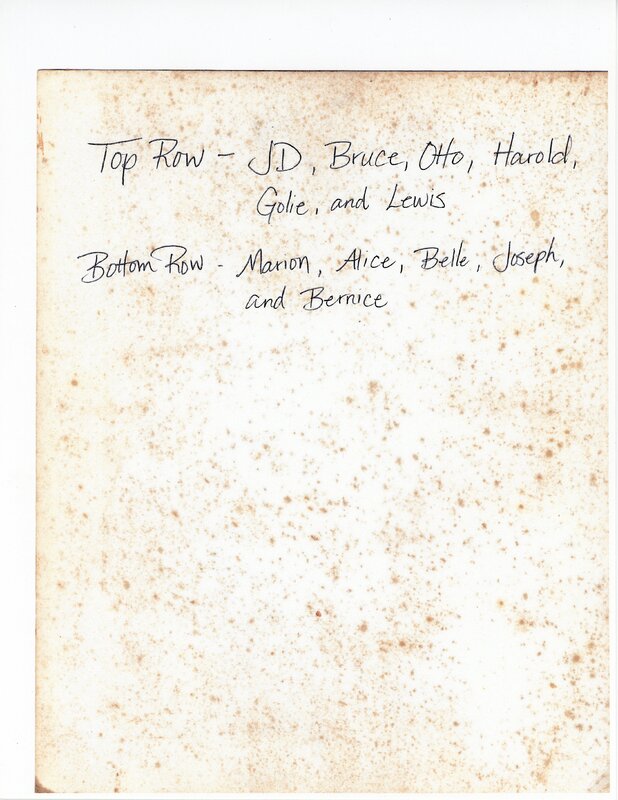 Top Row - JD, Bruce, Otto, Harold,
Golie, and Lewis
Bottom Row - Marion, Alice, Belle, Joseph,
and Bernice